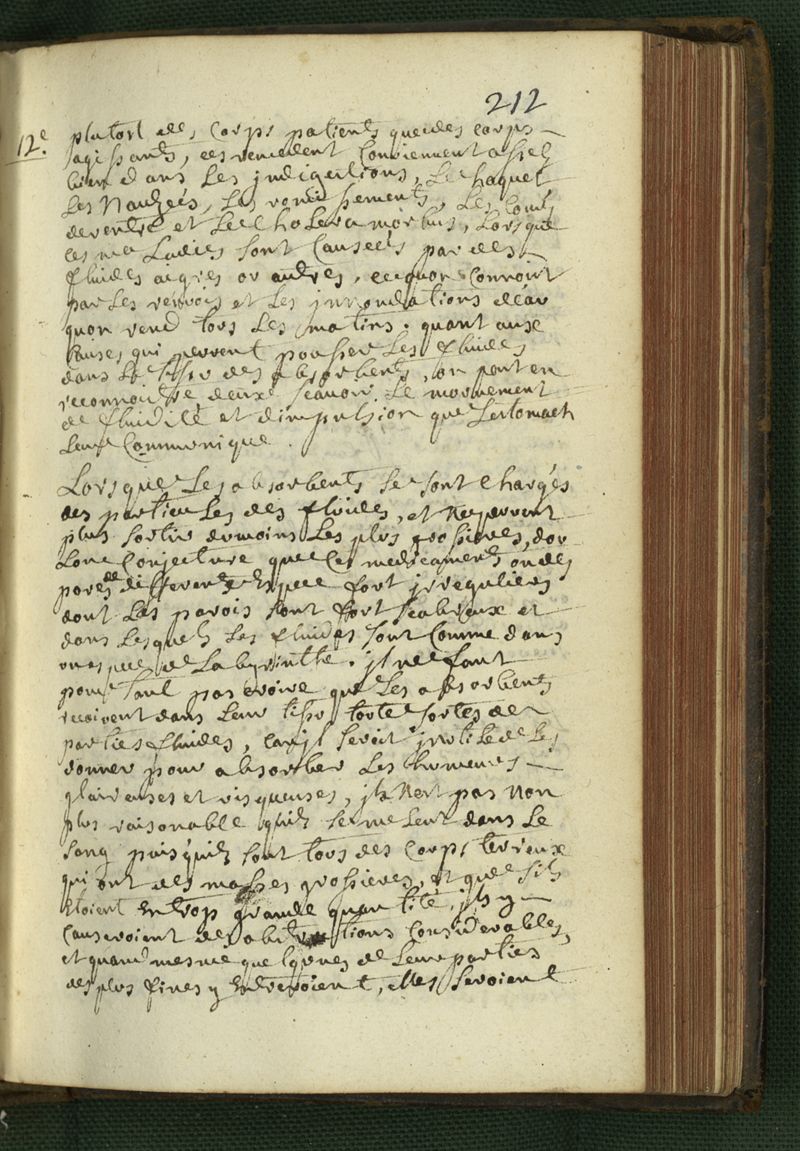 212
12e
plutost des corps patients que des corps
agissants, ces remedent conviennent assez
bien dans les indigestions, le haquet
les Nauzées, les vomissements, les cours
de ventre et le Cholera morbus, lorsque
ces maladies sont causeés par des
fluides aigres ou autres, ce quon connoit
par les renvois et les innondations deau
quon rend tous les matins. quant aux
causes qui peuvent pousser les fluides
dans le tissu des absorbents, on peut en
reconnoitre deux scauoir le mouvement
de fluidité et dimpulsion que lestomach
leur communique.
Lorsque les absorbents se sont chargés
des particules des fluides, et Ne peuvent
plus sortir du moins les plus grossieres, dou
lon conjecture que ces medicaments on des
pores de differente espece fort irreguliers
dont les parois sont fort scabreux et
dans lesquels les fluides sont comme dans
une espece de labyrinthe. il ne faut
pour tant pas croire que les absorbents
recoivent dans leur tissu toute sortes de
parties fluides, car il seroit inutile de les
donner pour absorber les humeurs
glaireuses et visqueuses, il Nest pas Non
plus raisonable quils se melent dans le
sang puis quils sont tous des corps terreux
qui ont des masses grossieres, et que sils
etoient en trop grande quantité, ils y
causeroient des obstructions considerables,
et quand mesme quelques de leurs parties
des plus fines y entreroient, elles seroient